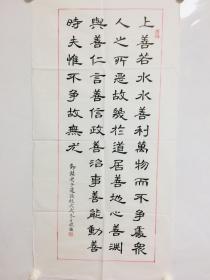 上善若水水善利萬物而不爭處衆
人之所惡故幾於道居善地心善淵
與善仁言善信政善治事善能動善
時夫惟不爭故無尤